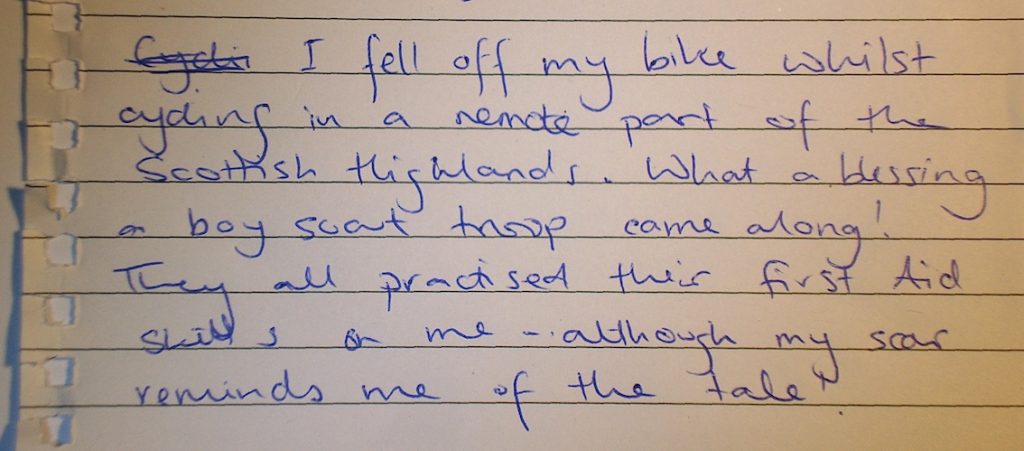 I fell off my bike whilst
cycling in a remote part of the
Scottish Highlands. What a blessing
a boy scout troop came along!
They all practised their first Aid
skills on me - although my scar
reminds me of the tale!